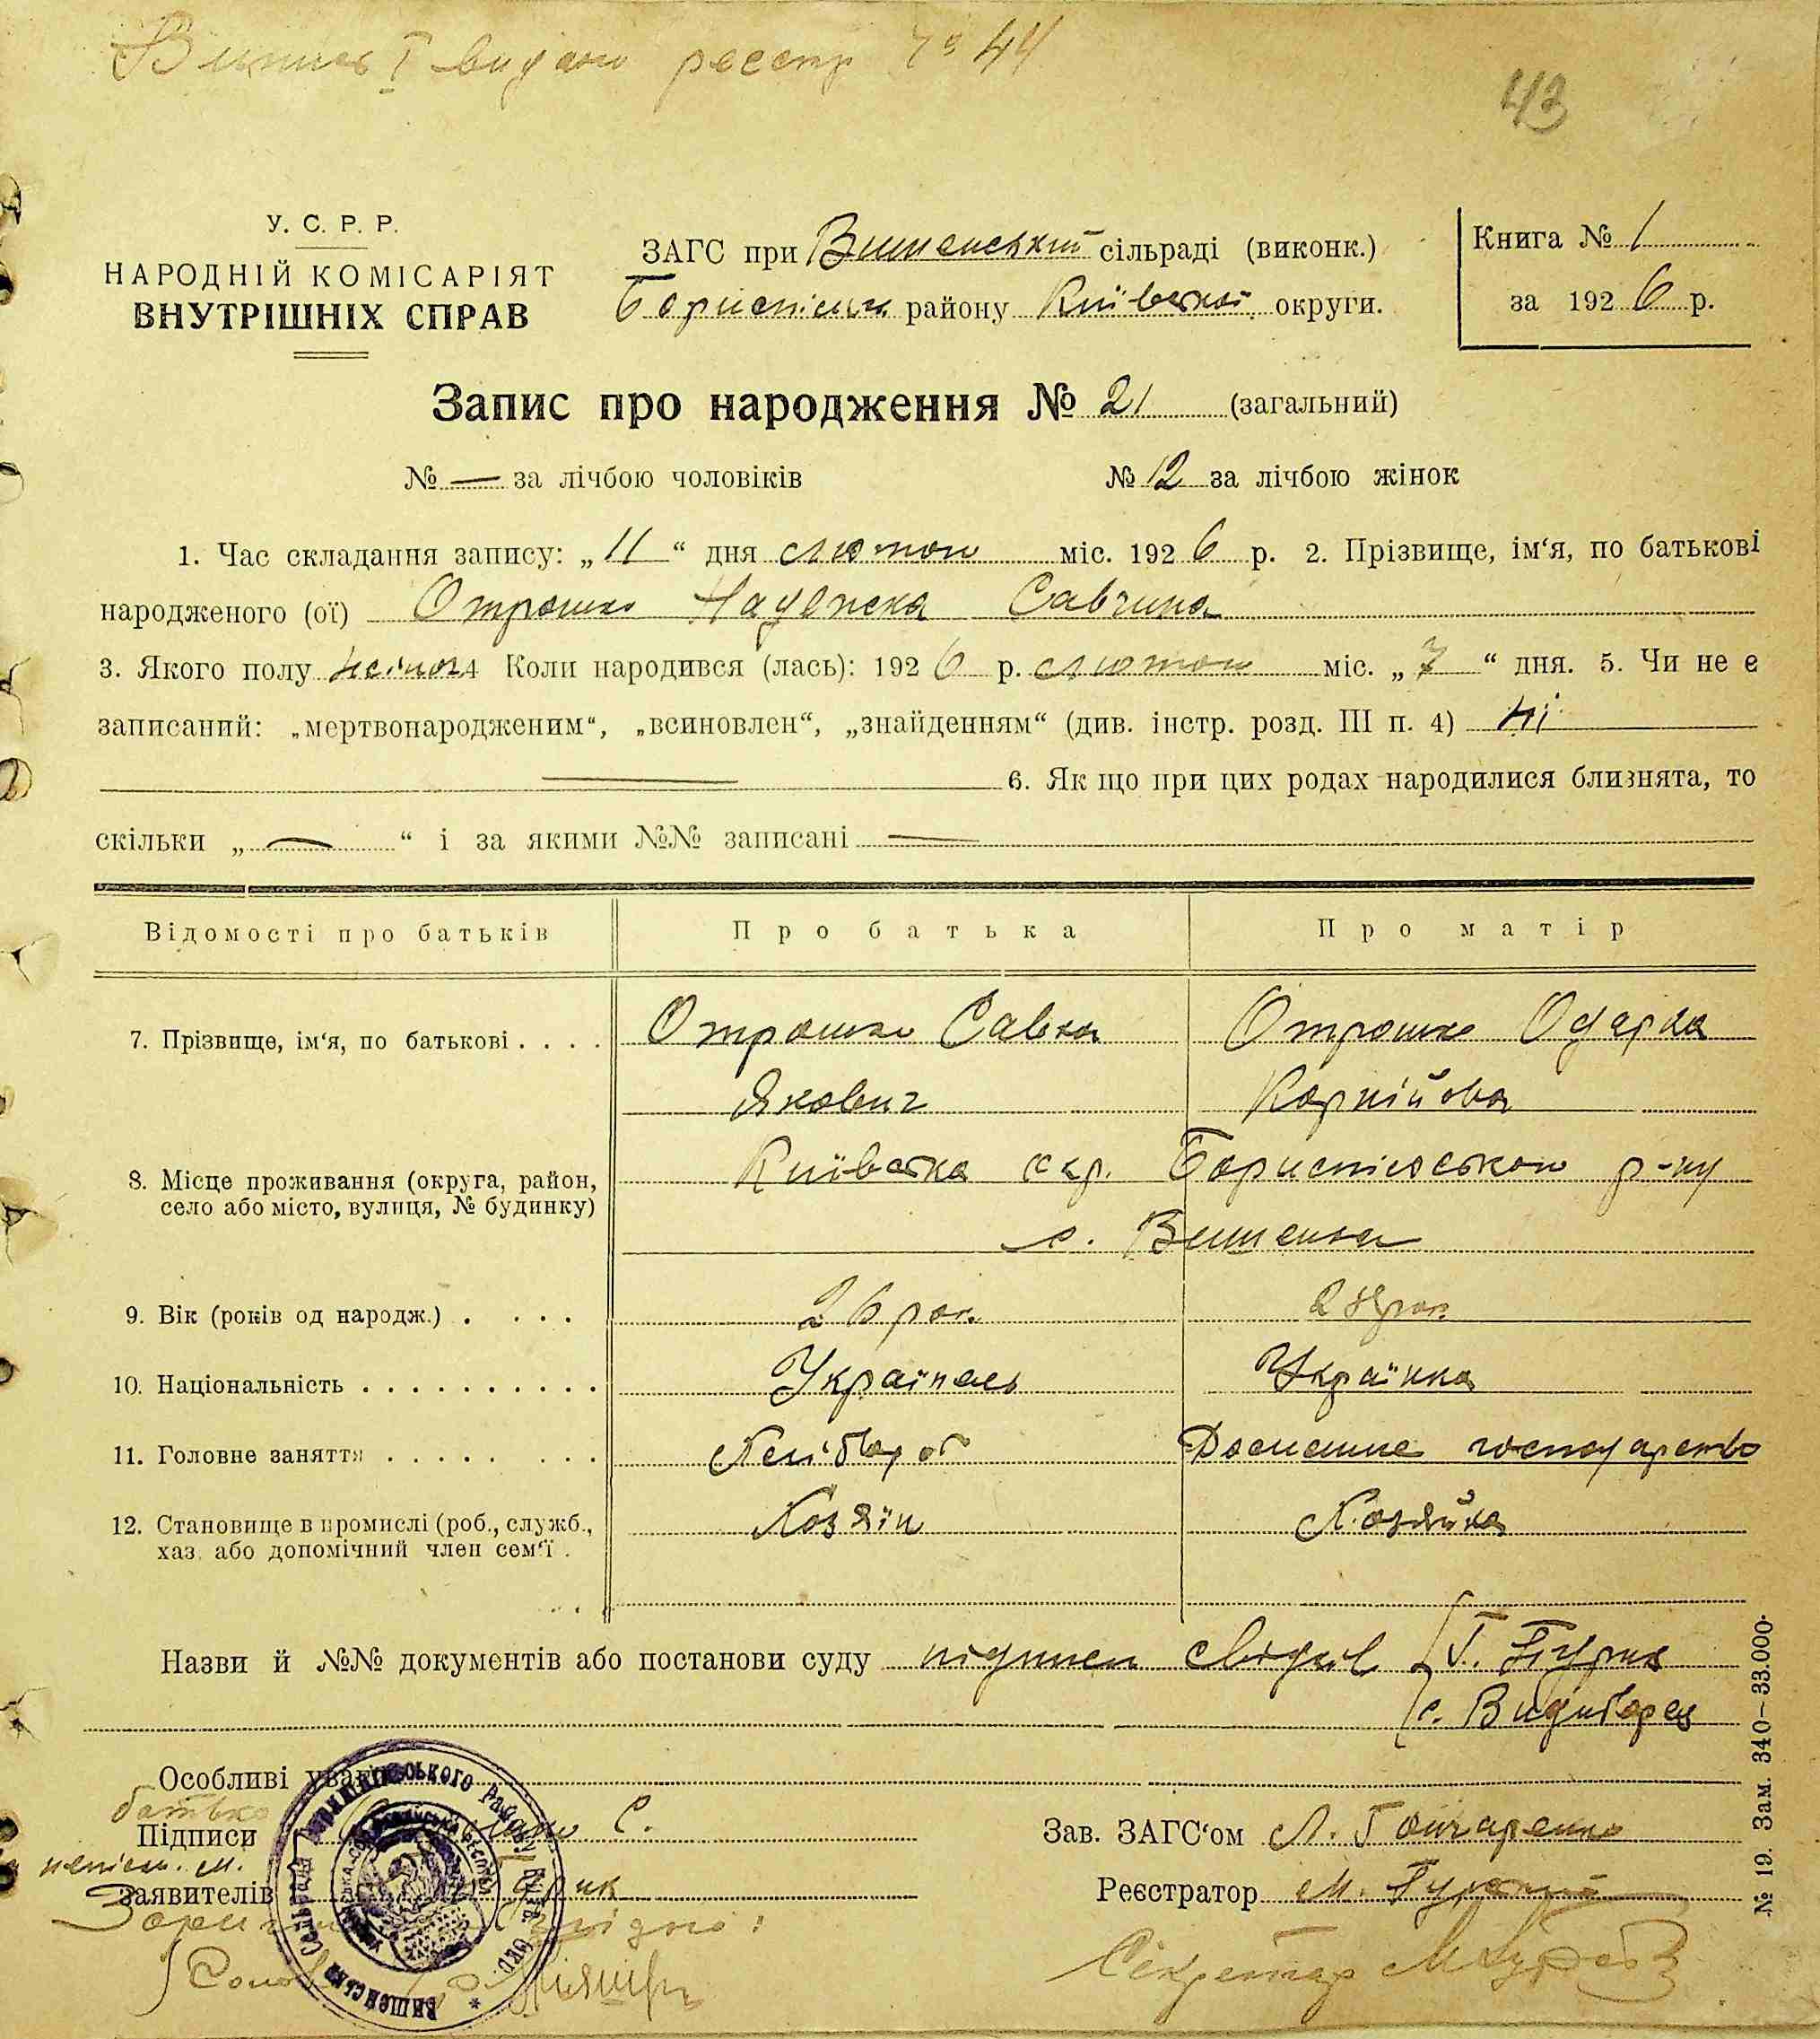 Випись І видано реєстр № 44
43
У. С. Р. Р.
НАРОДНІЙ КОМІСАРІЯТ
ВНУТРІШНІХ СПРАВ
ЗАГС при Вишенський сільраді (виконк.)
Бориспільск району Київської округи.
Книга № 1
за 1926 р.
Запис про народження № 21 (загальний)
№ — за лічбою чоловіків № 12 за лічбою жінок
1. Час складання запису: „11“ дня лютого міс. 1926 р. 2. Прізвище, ім‘я, по батькові
народженого (ої) Отрошко Надежда Савчина
3. Якого полу жіноч 4 Коли народився (лась): 1926 р. лютого міс. „7“ дня. 5. Чи не є
записаний: „мертвонародженим“, „всиновлен“, „знайденням“ (див. інстр. розд. III п. 4) ні
— 6. Як що при цих родах народилися близнята, то
скільки „—“ і за якими №№ записані —
Відомості про батьків Про батька Про матір
7. Прізвище, ім‘я, по батькові . . . . Отрошко Савка Отрошко Одарка
Якович Корнійова
8. Місце проживання (округа, район, Київська окр. Бориспільського р-ну
село або місто, вулиця, № будинку)
с. Вишеньки
9. Вік (років од народж.) . . . . 26 рок. 28 рок.
10. Національність . . . . . . . . . . Українець Українка
11. Головне заняття . . . . . . . . Хлібороб Домашнє господарство
12. Становище в промислі (роб., служб., Хозяїн Хозяйка
хаз. або допомічний член сем‘ї .
Назви й №№ документів або постанови суду підписи свідків Г. Гурин
с. Видиборец
Особливі уваги
батько С.
Підписи
непісм. м.
заявителів
Зав. ЗАГС‘ом Л. Гончаренко
Реєстратор М.
Секретар
№ 19. Зам. 340—33.000.